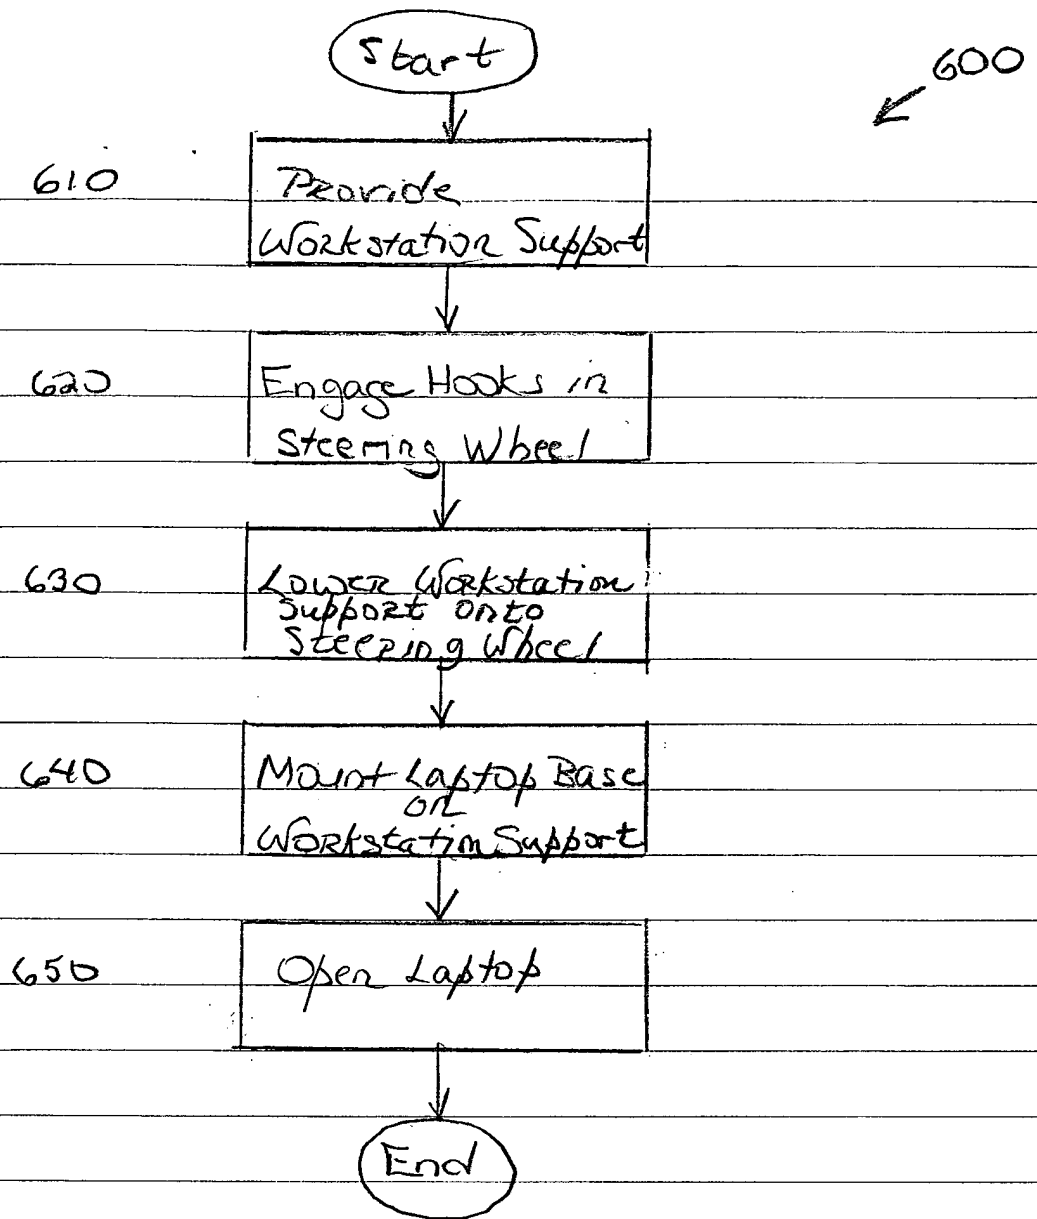 Start
600
610
Provide
Workstation Support
620
Engage Hooks in
Steering Wheel
630
Lower Workstation
Support onto
Steering Wheel
640
Mount Laptop Base
on
Workstation Support
650
Open Laptop
End